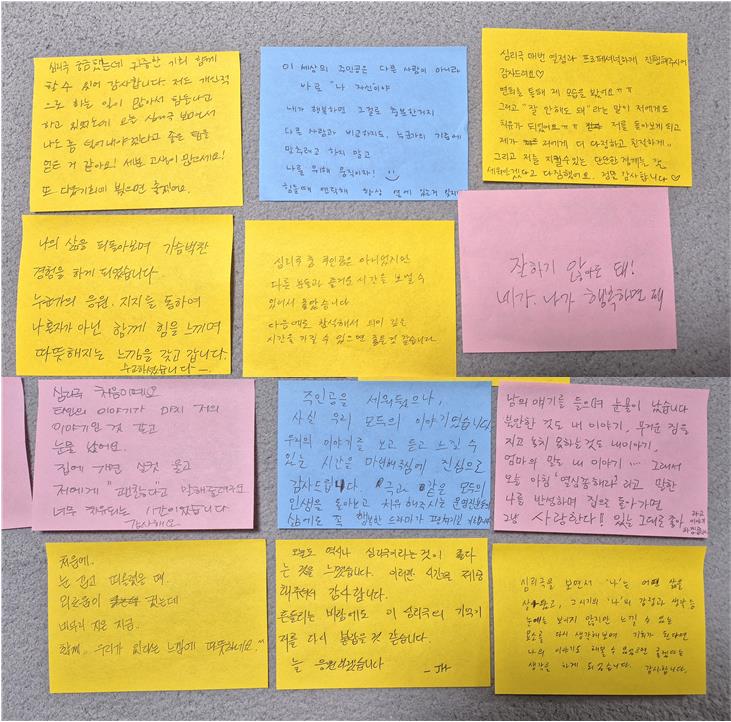 심리극 궁금했는데 귀중한 기회 함께
할 수 있어 감사합니다. 저도 개인적
으로 하는 일이 많아서 힘들다고
하고 있었는데 오늘 심리극 보면서
나도 좀 덜어내야겠다고 좋은 팁을
얻은 거 같아요! 세분 고생이 많으세요!
또 다음기회에 뵈으면 좋겠어요.
이 세상의 주인공은 다른 사람이 아니라
바로 "나 자신이야
내가 행복하면 그걸로 충분한거지
다른 사람과 비교하지도, 누군가의 기준에
맞추려고 하지 말고
나를 위해 움직이자!
힘들때 연락해 항상 옆에
심리극 매번 열정과 프로페셔널하게 진행해주시어
감사드려요♡
면회를 통해 제 모습을 봤어요ㅠㅠ
그리고 "잘 안해도 돼" 라는 말이 저에게도
치유가 되었어요ㅠㅠ 저를 돌아보게 되고
제가 저에게 더 다정하고 친절하게
그리고 저를 지킬수있는 단단한 경계는 꼭
세워야겠다고 다짐했어요. 정말 감사합니다♡
나의 삶을 되돌아보며 가슴벅찬
경험을 하게 되었습니다.
누군가의 응원, 지지를 통하여
나혼자가 아닌 함께 힘을 느끼며
따뜻해지는 느낌을 갖고 갑니다.
수고하셨습니다
심리극 중 주인공은 아니었지만
다른 분들과 즐거운 시간을 보낼 수
있어서 좋았습니다
다음에도 참석해서 의미 깊은
시간을 가질 수 있으면 좋을것 같습니다
잘하기 않아도 돼!
네가, 나가 행복하면 돼
심리극 처음이예요
타인의 이야기가 마치 저의
이야기인 것 같고
눈물 났어요.
집에 가면 실컷 울고
저에게 "괜찮다"고 말해줄려구요
너무 치유되는 시간이었습니다
감사해요
주인공을 세워뒀으나,
사실 우리 모두의 이야기였습니다.
우리의 이야기를 보고 듣고 느낄 수
있는 시간을 마련해주심에 진심으로
감사드립니다. 극과 같은 모두의
인생을 돌아보고 치유해주시는
삶에도 꼭 행복한 드라마가 펼쳐지길
남의 얘기를 들으며 눈물이 났습니다
불안한 것도 내 이야기, 무거운 짐을
지고 놓지 못하는것도 내이야기,
엄마의 말도 내 이야기 … 그래서
오늘 아침 '열심좀해라'라고 말한
나를 반성하며 집으로 돌아가면
그냥 사랑한다!! 있는 그대로 좋아
라고 이야기
처음에.
눈 감고 떠올렸을 때.
외로움이 컸는데
마무리 지은 지금.
함께. 우리가 있다는 느낌에 따뜻하네요.^^
오늘도 역시나 심리극이라는 것이 좋다
는 것을 느꼈습니다. 이러한 시간을 제공
해주셔서 감사합니다.
흔들리는 바람에도 이 심리극의 기억이
저를 다시 붙잡을것 같습니다.
늘 응원하겠습니다
심리극을 보면서 '나'는 어떤 삶을
살았고, 그 시기의 '나'의 감정과 생각 등
눈에는 보이지 않지만 느낄 수 있는
요소를 다시 생각해보며 기회가 된다면
나의 이야기도 해볼 수 있었으면 좋겠다는
생각을 하게 되었습니다. 감사합니다.